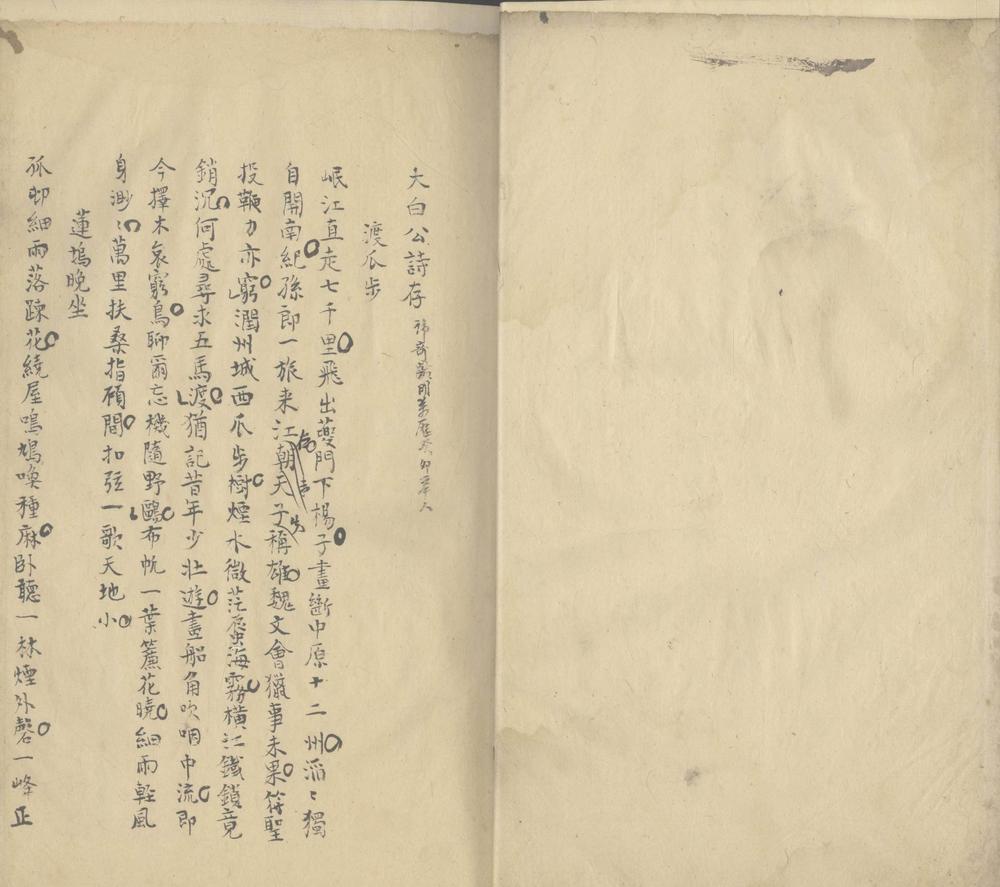 大白公詩存 諱奇勳明萬歷癸卯舉人
渡瓜步
岷江直走七千里飛出夔門下楊子畫斷中原十二州滔〻獨
自開南紀孫郎一旅来江朝天子稱雄魏文會獵事未果苻聖
投鞭力亦窮潤州城西瓜步樹煙水微茫蜃海霧橫江鐵鎖竟
銷沉何處尋求五馬渡猶記昔年少壯遊畫船角吹咽中流即
今擇木哀窮鳥聊爾忘機隨野鷗布帆一葉簾花曉細雨輕風
身渺〻萬里扶桑指顧間扣弦一歌天地小
蓮塢晚坐
孤邨細雨落踈花繞屋鳴鳩喚種麻卧聽一林煙外磬一峰正